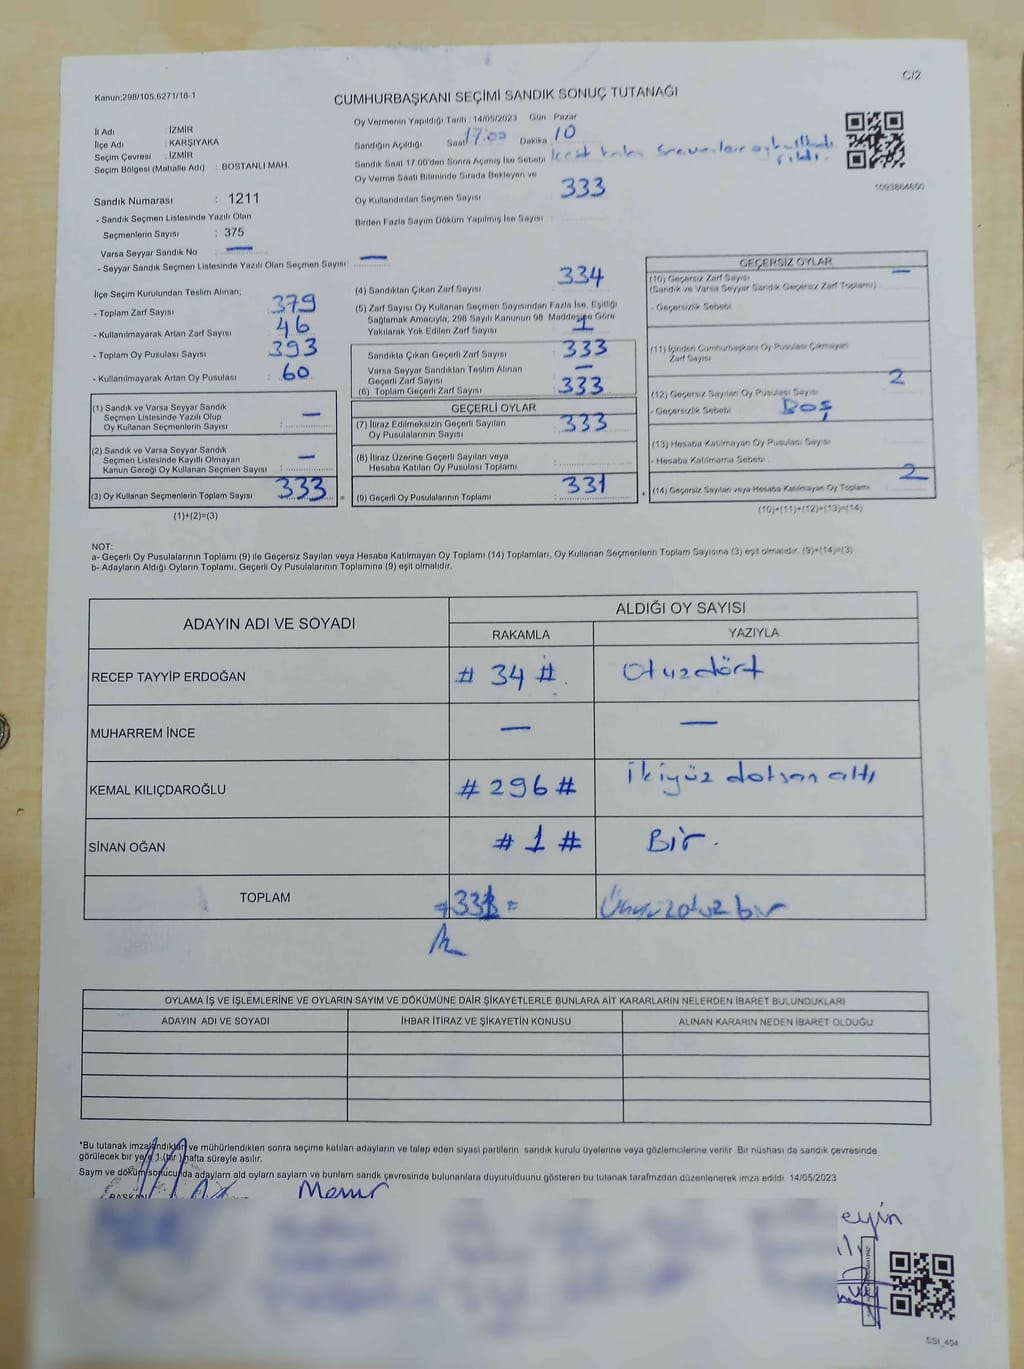 C/2
Kanun;298/105,6271/18-1
CUMHURBAŞKANI SEÇİMİ SANDIK SONUÇ TUTANAĞI
İl Adı : İZMİR
İlçe Adı : KARŞIYAKA
Seçim Çevresi : İZMİR
Seçim Bölgesi (Mahalle Adı) : BOSTANLI MAH.
Sandık Numarası : 1211
- Sandık Seçmen Listesinde Yazılı Olan
Seçmenlerin Sayısı : 375
Varsa Seyyar Sandık No : —
- Seyyar Sandık Seçmen Listesinde Yazılı Olan Seçmen Sayısı: —
Oy Vermenin Yapıldığı Tarih : 14/05/2023 Gün : Pazar
Sandığın Açıldığı Saat 17:00 Dakika 10
Sandık Saat 17.00'den Sonra Açılmış İse Sebebi
Oy Verme Saati Bitiminde Sırada Bekleyen ve
Oy Kullandırılan Seçmen Sayısı : 333
Birden Fazla Sayım Döküm Yapılmış İse Sayısı :
1093864650
İlçe Seçim Kurulundan Teslim Alınan;
- Toplam Zarf Sayısı : 379
- Kullanılmayarak Artan Zarf Sayısı : 46
- Toplam Oy Pusulası Sayısı : 393
- Kullanılmayarak Artan Oy Pusulası : 60
(1) Sandık ve Varsa Seyyar Sandık
Seçmen Listesinde Yazılı Olup
Oy Kullanan Seçmenlerin Sayısı : —
(2) Sandık ve Varsa Seyyar Sandık
Seçmen Listesinde Kayıtlı Olmayan
Kanun Gereği Oy Kullanan Seçmen Sayısı : —
(3) Oy Kullanan Seçmenlerin Toplam Sayısı : 333 =
(1)+(2)=(3)
(4) Sandıktan Çıkan Zarf Sayısı : 334
(5) Zarf Sayısı Oy Kullanan Seçmen Sayısından Fazla İse, Eşitliği
Sağlamak Amacıyla; 298 Sayılı Kanunun 98. Maddesine Göre
Yakılarak Yok Edilen Zarf Sayısı : 1
Sandıkta Çıkan Geçerli Zarf Sayısı : 333
Varsa Seyyar Sandıktan Teslim Alınan
Geçerli Zarf Sayısı : —
(6) Toplam Geçerli Zarf Sayısı : 333
GEÇERLİ OYLAR
(7) İtiraz Edilmeksizin Geçerli Sayılan
Oy Pusulalarının Sayısı : 333
(8) İtiraz Üzerine Geçerli Sayılan veya
Hesaba Katılan Oy Pusulası Toplamı :
(9) Geçerli Oy Pusulalarının Toplamı : 331 +
GEÇERSİZ OYLAR
(10) Geçersiz Zarf Sayısı —
(Sandık ve Varsa Seyyar Sandık Geçersiz Zarf Toplamı)
- Geçersizlik Sebebi :
(11) İçinden Cumhurbaşkanı Oy Pusulası Çıkmayan
Zarf Sayısı
(12) Geçersiz Sayılan Oy Pusulası Sayısı 2
- Geçersizlik Sebebi : BOŞ
(13) Hesaba Katılmayan Oy Pusulası Sayısı
- Hesaba Katılmama Sebebi :
(14) Geçersiz Sayılan veya Hesaba Katılmayan Oy Toplamı 2
(10)+(11)+(12)+(13)=(14)
NOT:
a- Geçerli Oy Pusulalarının Toplamı (9) ile Geçersiz Sayılan veya Hesaba Katılmayan Oy Toplamı (14) Toplamları, Oy Kullanan Seçmenlerin Toplam Sayısına (3) eşit olmalıdır. (9)+(14)=(3)
b- Adayların Aldığı Oyların Toplamı, Geçerli Oy Pusulalarının Toplamına (9) eşit olmalıdır.
ADAYIN ADI VE SOYADI
ALDIĞI OY SAYISI
RAKAMLA YAZIYLA
RECEP TAYYİP ERDOĞAN # 34 # Otuzdört
MUHARREM İNCE — —
KEMAL KILIÇDAROĞLU # 296 # İkiyüz doksan altı
SİNAN OĞAN # 1 # Bir.
TOPLAM =331= Üçyüzotuzbir
OYLAMA İŞ VE İŞLEMLERİNE VE OYLARIN SAYIM VE DÖKÜMÜNE DAİR ŞİKAYETLERLE BUNLARA AİT KARARLARIN NELERDEN İBARET BULUNDUKLARI
ADAYIN ADI VE SOYADI İHBAR İTİRAZ VE ŞİKAYETİN KONUSU ALINAN KARARIN NEDEN İBARET OLDUĞU
*Bu tutanak imzalandıktan ve mühürlendikten sonra seçime katılan adayların ve talep eden siyasi partilerin sandık kurulu üyelerine veya gözlemcilerine verilir. Bir nüshası da sandık çevresinde
görülecek bir yere 1 (bir) hafta süreyle asılır.
Saym ve döküm sonucunda adaylarn ald oylarn saylarn ve bunlarn sandk çevresinde bulunanlara duyurulduunu gösteren bu tutanak tarafmzdan düzenlenerek imza edildi. 14/05/2023
BAŞKAN
Memur
eyin
SSI_404